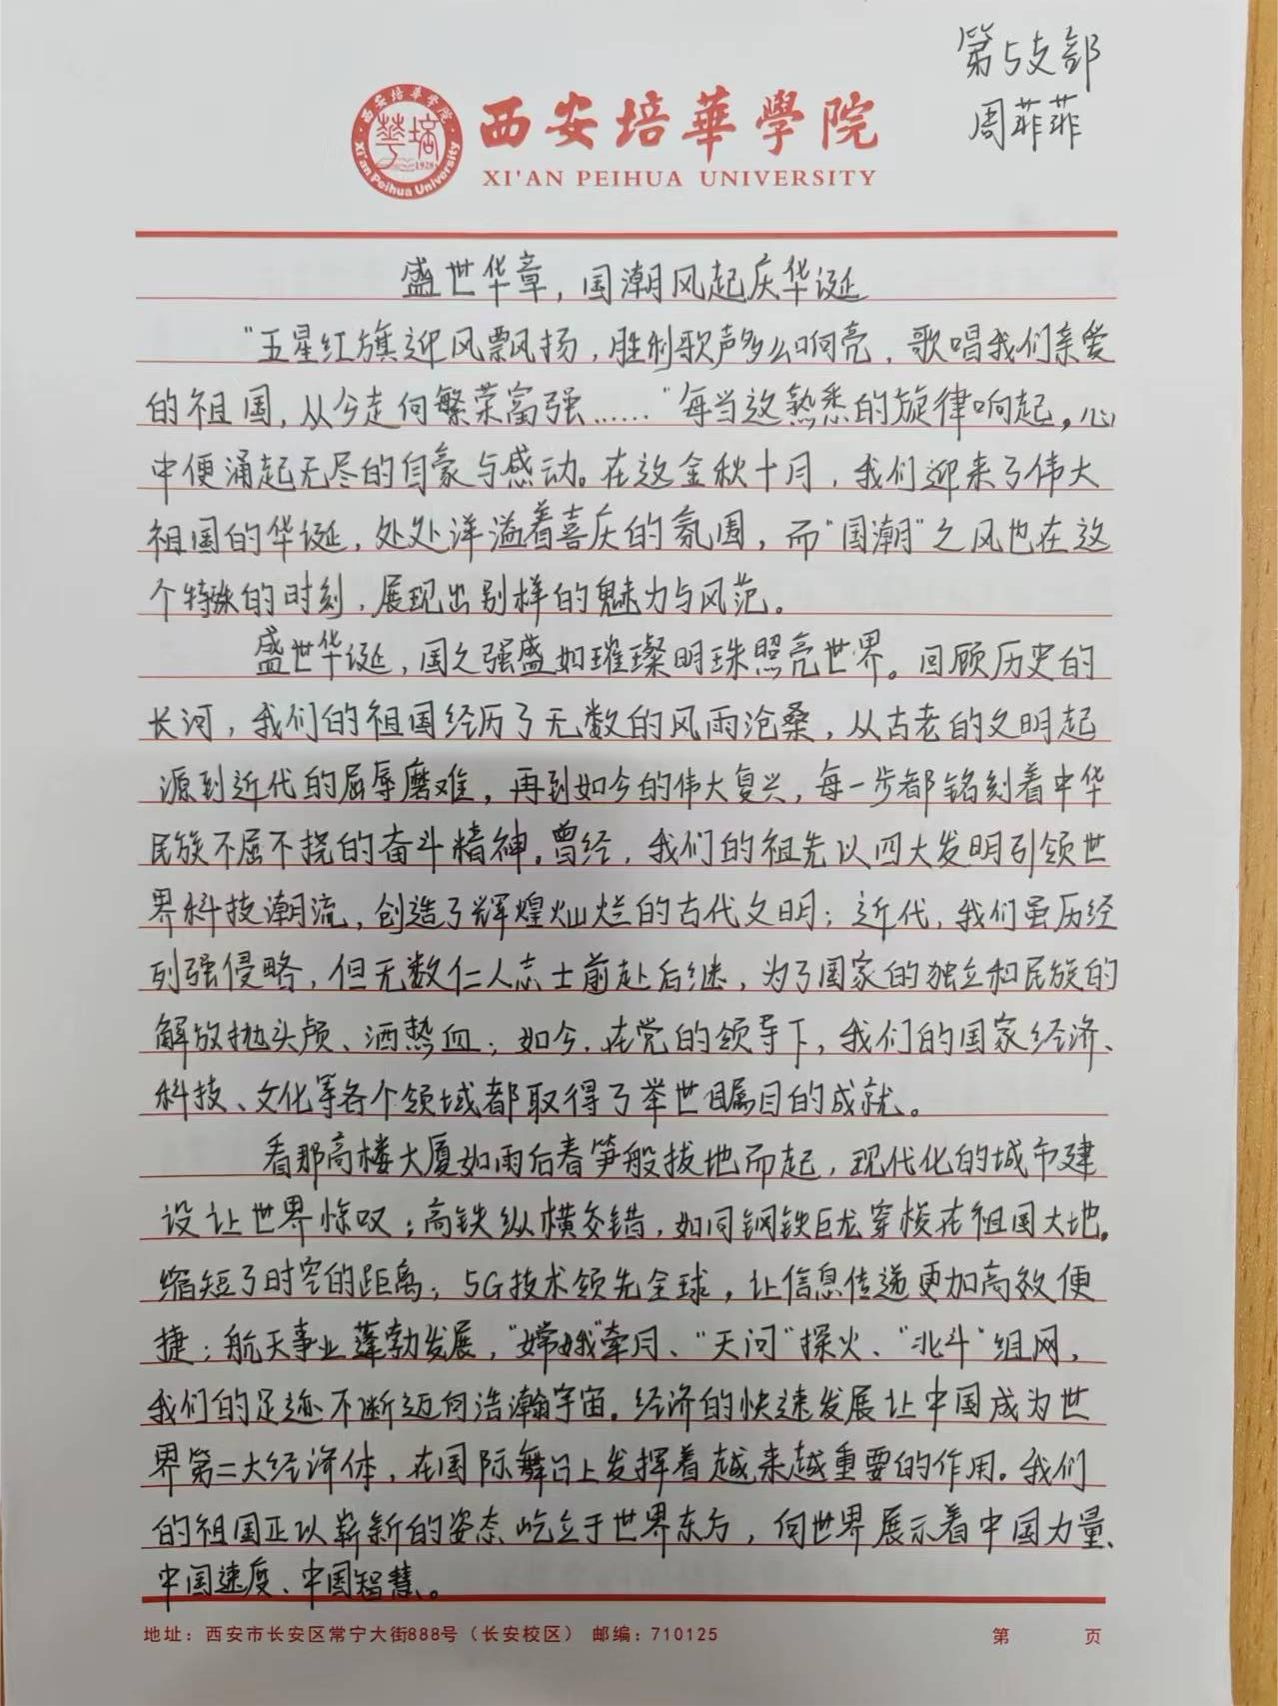 第5支部
周菲菲
西安培華學院
XI'AN PEIHUA UNIVERSITY
西安培华学院
Xi'an Peihua University
1928
盛世华章，国潮风起庆华诞
“五星红旗迎风飘扬，胜利歌声多么响亮，歌唱我们亲爱
的祖国，从今走向繁荣富强……”每当这熟悉的旋律响起，心
中便涌起无尽的自豪与感动。在这金秋十月，我们迎来了伟大
祖国的华诞，处处洋溢着喜庆的氛围，而“国潮”之风也在这
个特殊的时刻，展现出别样的魅力与风范。
盛世华诞，国之强盛如璀璨明珠照亮世界。回顾历史的
长河，我们的祖国经历了无数的风雨沧桑，从古老的文明起
源到近代的屈辱磨难，再到如今的伟大复兴，每一步都铭刻着中华
民族不屈不挠的奋斗精神。曾经，我们的祖先以四大发明引领世
界科技潮流，创造了辉煌灿烂的古代文明；近代，我们虽历经
列强侵略，但无数仁人志士前赴后继，为了国家的独立和民族的
解放抛头颅、洒热血；如今，在党的领导下，我们的国家经济、
科技、文化等各个领域都取得了举世瞩目的成就。
看那高楼大厦如雨后春笋般拔地而起，现代化的城市建
设让世界惊叹；高铁纵横交错，如同钢铁巨龙穿梭在祖国大地，
缩短了时空的距离；5G技术领先全球，让信息传递更加高效便
捷；航天事业蓬勃发展，“嫦娥”牵月、“天问”探火、“北斗”组网，
我们的足迹不断迈向浩瀚宇宙。经济的快速发展让中国成为世
界第二大经济体，在国际舞台上发挥着越来越重要的作用。我们
的祖国正以崭新的姿态屹立于世界东方，向世界展示着中国力量、
中国速度、中国智慧。
地址：西安市长安区常宁大街888号（长安校区） 邮编：710125
第 页